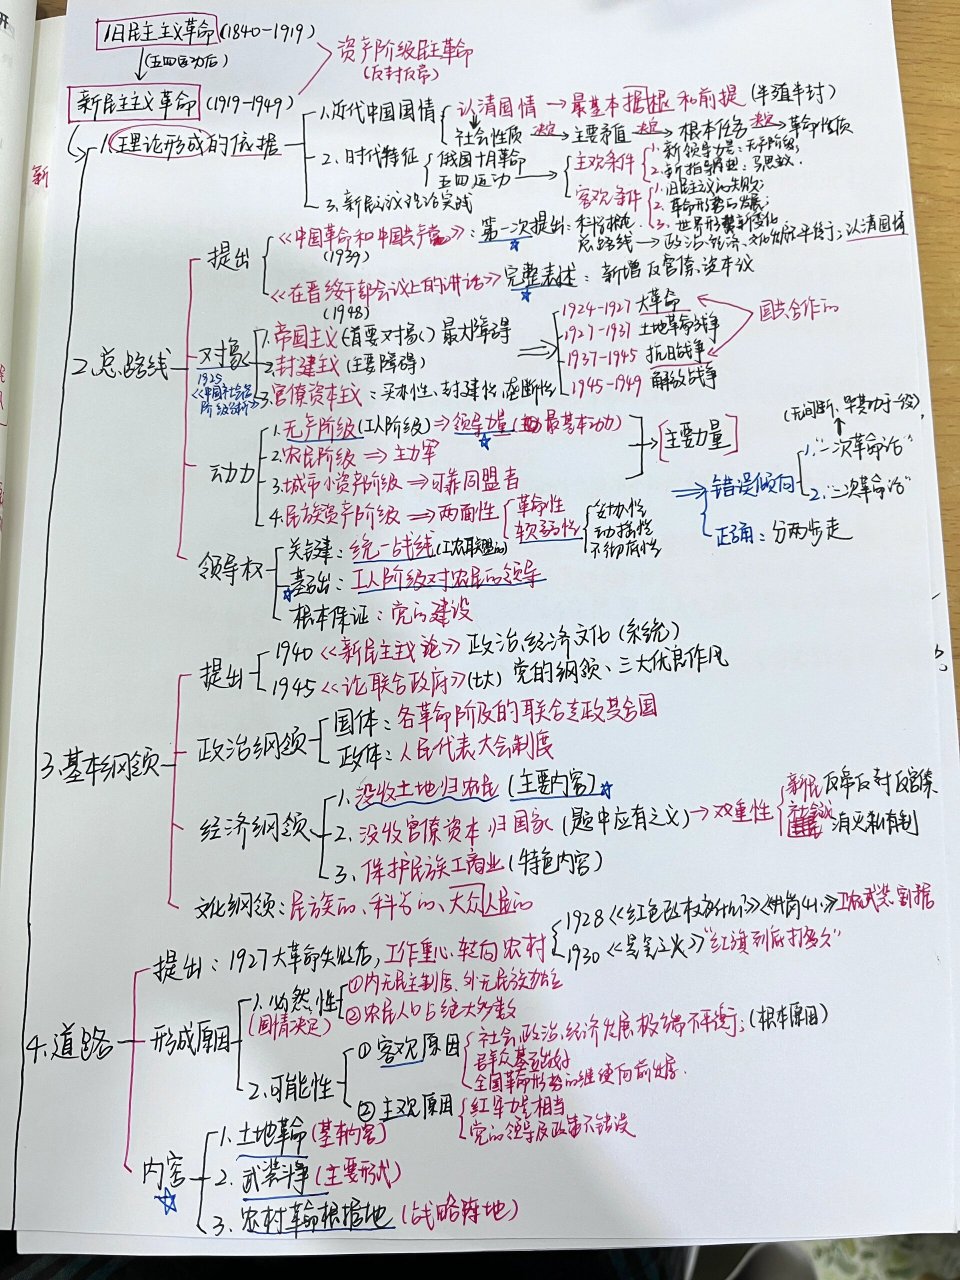 旧民主主义革命(1840-1919)
(五四运动后)
资产阶级民主革命
(反封反帝)
新民主主义革命(1919-1949)
1.理论形成的依据
1.近代中国国情
认清国情→最基本根据和前提(半殖半封)
社会性质 决定→主要矛盾 决定→根本任务 决定→革命性质
2.时代特征
俄国十月革命
五四运动
主观条件
1.新领导力量:无产阶级;
2.新指导思想:马思主义.
客观条件
1.旧民主主义的失败;
2.革命形势的发展;
3.世界形势新变化
3.新民主主义理论实践
新
2.总路线
提出
《中国革命和中国共产党》:第一次提出:科学概念
(1939)
总路线→政治、经济、文化发展不平衡;认清国情
《在晋绥干部会议上的讲话》完整表述:新增反官僚资本主义
(1948)
对象
1925
《中国社会各阶级分析》
1.帝国主义(首要对象)最大障碍
2.封建主义(主要障碍)
3.官僚资本主义:买办性、封建性、垄断性
1924-1927 大革命
1927-1931 土地革命战争
1937-1945 抗日战争
1945-1949 解放战争
国共合作的
动力
1.无产阶级(工人阶级)⇒领导力量(最基本动力)
2.农民阶级⇒主力军
3.城市小资产阶级⇒可靠同盟者
4.民族资产阶级⇒两面性
革命性
软弱性
妥协性
动摇性
不彻底性
[主要力量]
(无间断、毕其功于一役)
错误倾向
1."一次革命论"
2."二次革命论"
正确:分两步走
领导权
关键:统一战线(工农联盟的)
基础:工人阶级对农民的领导
根本保证:党的建设
3.基本纲领
提出
1940《新民主主义论》政治、经济、文化(系统)
1945《论联合政府》(七大)党的纲领、三大优良作风
政治纲领
国体:各革命阶级的联合专政共合国
政体:人民代表大会制度
经济纲领
1.没收土地归农民(主要内容)
2.没收官僚资本归国家(题中应有之义)→双重性
新民 反帝反封反官僚
社会主义 消灭私有制
3、保护民族工商业(特色内容)
文化纲领:民族的、科学的、大众人民的
4.道路
提出:1927大革命失败后,工作重心转向农村
1928《红色政权为什么》《井岗山》工农武装割据
1930《星星之火》"红旗到底打多久"
形成原因
1.必然性
(国情决定)
①内无民主制度、外无民族独立
②农民人口占绝大多数
2.可能性
①客观原因
社会政治、经济发展极端不平衡;(根本原因)
群众基础好
全国革命形势的继续向前发展.
②主观原因
红军力量相当
党的领导及政策不错误
内容
1.土地革命(基本内容)
2.武装斗争(主要形式)
3.农村革命根据地(战略阵地)